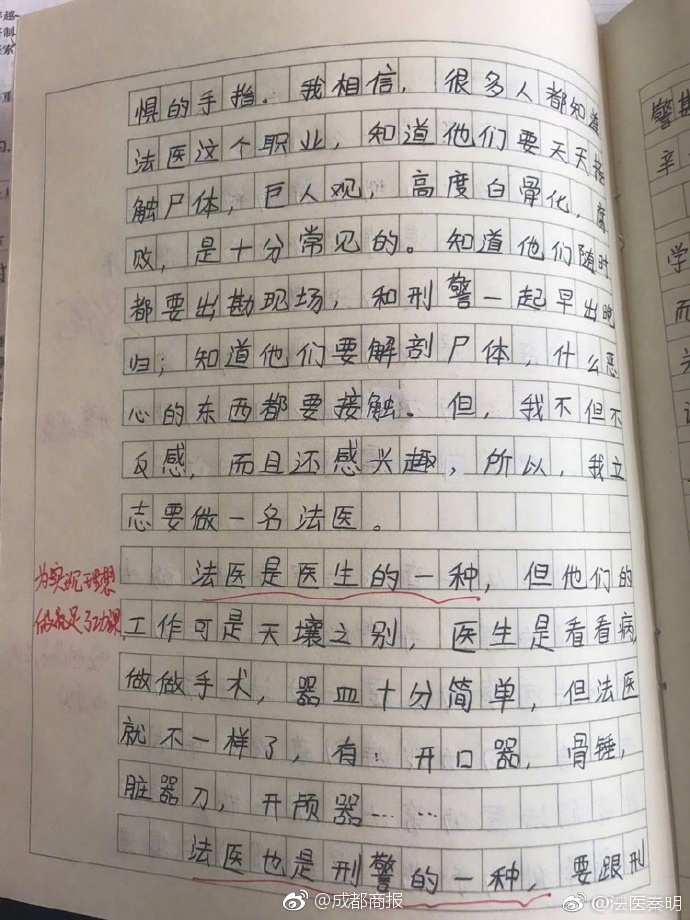 惧的手指。我相信，很多人都知道
法医这个职业，知道他们要天天接
触尸体，巨人观，高度白骨化，腐
败，是十分常见的。知道他们随时
都要出勘现场，和刑警一起早出晚
归；知道他们要解剖尸体，什么恶
心的东西都要接触。但，我不但不
反感，而且还感兴趣，所以，我立
志要做一名法医。
法医是医生的一种，但他们的
为实现理想
做足了功课
工作可是天壤之别，医生是看看病，
做做手术，器血十分简单，但法医
就不一样了，有：开口器，骨锤，
脏器刀，开颅器……
法医也是刑警的一种，要跟刑
警勘
辛
学
而
关
@成都商报
@法医秦明